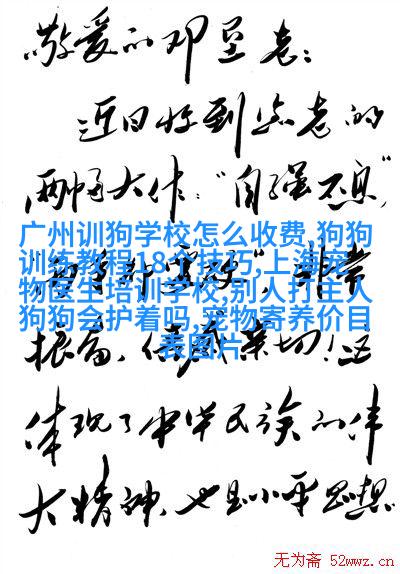 敬爱的邓垦老：
近日收到您老的
两幅大作："自强不息"
广州训狗学校怎么收费,狗狗
训练教程18个技巧,上海宠
物医生培训学校,别人打主人
狗狗会护着吗,宠物寄养价目
表图片
非常
振奋，倍感亲切！这
体现了中华民族的伟
大精神，也是小平思想
无为斋 52wwz.cn